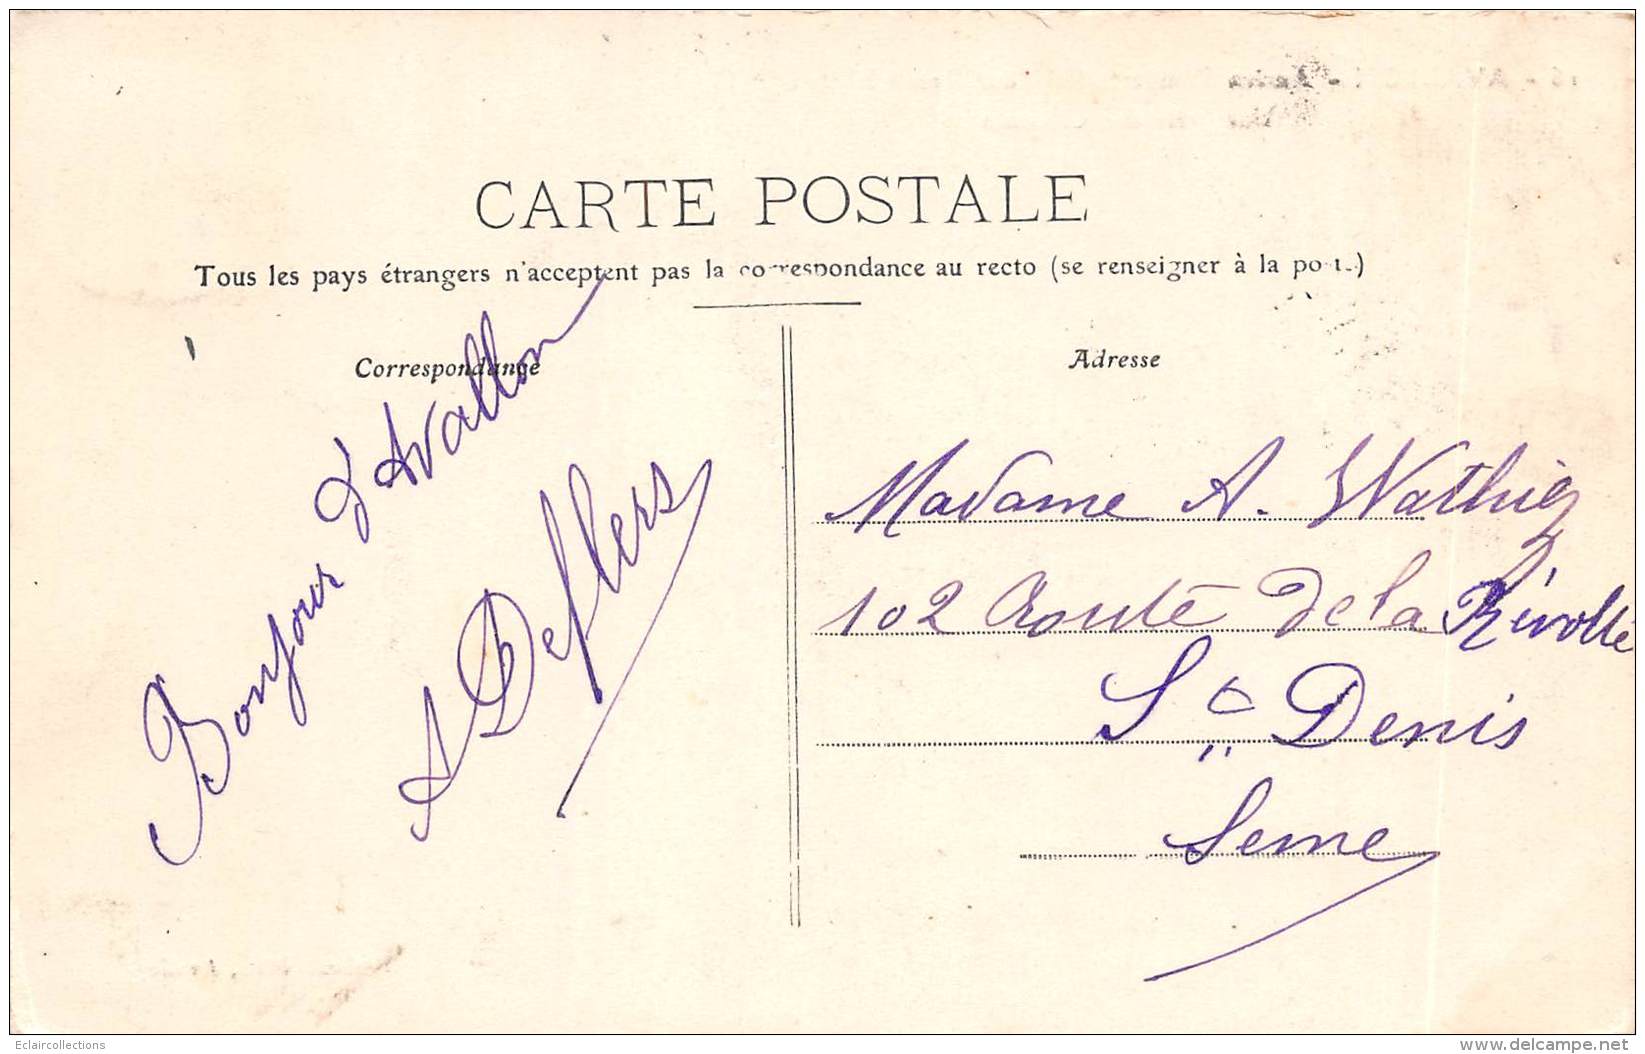 CARTE POSTALE
Tous les pays étrangers n'acceptent pas la correspondance au recto (se renseigner à la poste)
Correspondance
Adresse
Bonjour d'Avallon
A Deflers
Madame A. Wathier
102 Route de la Révolte
St Denis
Seine
Eclaircollections
www.delcampe.net